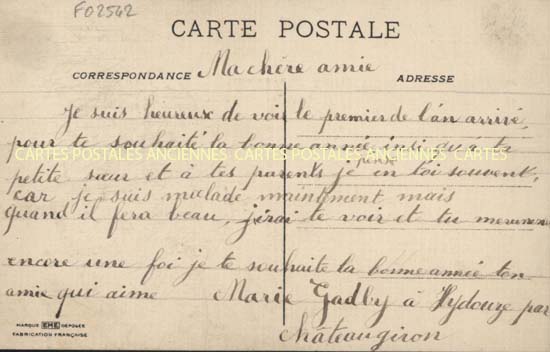 F02542
CARTE POSTALE
CORRESPONDANCE Ma chère amie ADRESSE
Je suis heureux de voir le premier de l'an arrivé,
pour te souhaité la bonne année insi qu'à ta
CARTES POSTALES ANCIENNES CARTES POSTALES ANCIENNES
petite sœur et à tes parents je toi souvent,
car je suis malade maintement mais
quand il fera beau, j'irai te voir et tu
encore une foi je te souhaite la bonne année ton
amie qui aime Marie Gadby à Hydouze par
Châteaugiron
MARQUE EHE DÉPOSÉE
FABRICATION FRANÇAISE